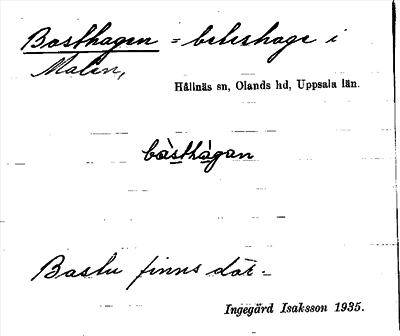 Basthagen = beteshage i
Malen,
Hållnäs sn, Olands hd, Uppsala län.
bàsthàgan
Bastu finns där -
Ingegärd Isaksson 1935.